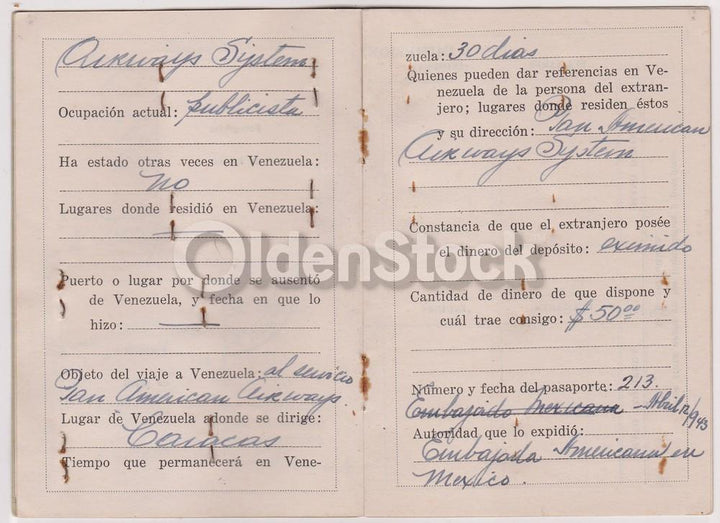 Airways System
Ocupación actual: publicista
Ha estado otras veces en Venezuela:
No
Lugares donde residió en Venezuela:
Puerto o lugar por donde se ausentó
de Venezuela, y fecha en que lo
hizo:
Objeto del viaje a Venezuela: al servicio
Pan American Airways.
Lugar de Venezuela adonde se dirige:
Caracas
Tiempo que permanecerá en Vene-
zuela: 30 dias
Quienes pueden dar referencias en Ve-
nezuela de la persona del extran-
jero; lugares donde residen éstos
y su dirección: Pan American
Airways System
Constancia de que el extranjero posée
el dinero del depósito: eximido
Cantidad de dinero de que dispone y
cuál trae consigo: $50.00
Número y fecha del pasaporte: 213.
Embajada Mexicana - Abril 12/943
Autoridad que lo expidió:
Embajada Americana en
Mexico.
OldenStock